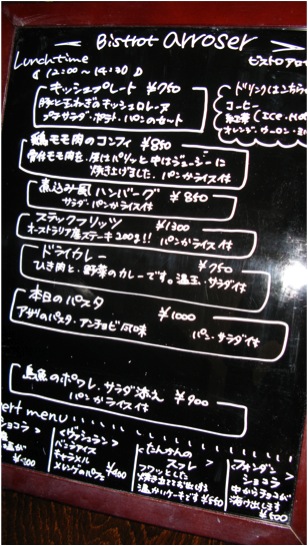 Bistrot arroser
Lunch time
ビストロ アロ
(12:00~14:30)
キッシュプレート ¥750
豚と玉ねぎのキッシュロレーヌ
プチサラダ・ポテト・パンのセット
ドリンクはこちら
コーヒー
紅茶 (ICE・HO
オレンジ・ウーロン・
鶏モモ肉のコンフィ ¥850
骨付モモ肉を、皮はパリッと中はジューシーに
焼き上げました。パンかライス付
煮込み風ハンバーグ ¥850
サラダ・パンかライス付
ステックフリッツ ¥1300
オーストラリア産ステーキ200g!! パンかライス付
ドライカレー ¥750
ひき肉と、野菜のカレーです。温玉、サラダ付
本日のパスタ ¥1000
アサリのパスタ・アンチョビ風味 パン・サラダ付
鳥魚のポワレ、サラダ添え ¥900
パンかライス付
ert menu
ショコラ
<ガナッシュラン>
バニラアイス
キャラメル
メレンゲのパフェ ¥400
<たんかんの
スフレ>
フワッとした
焼き立てをお出しします
温かいケーキです ¥550
<フォンダン
ショコラ>
中からチョコが
溶け出します
¥500